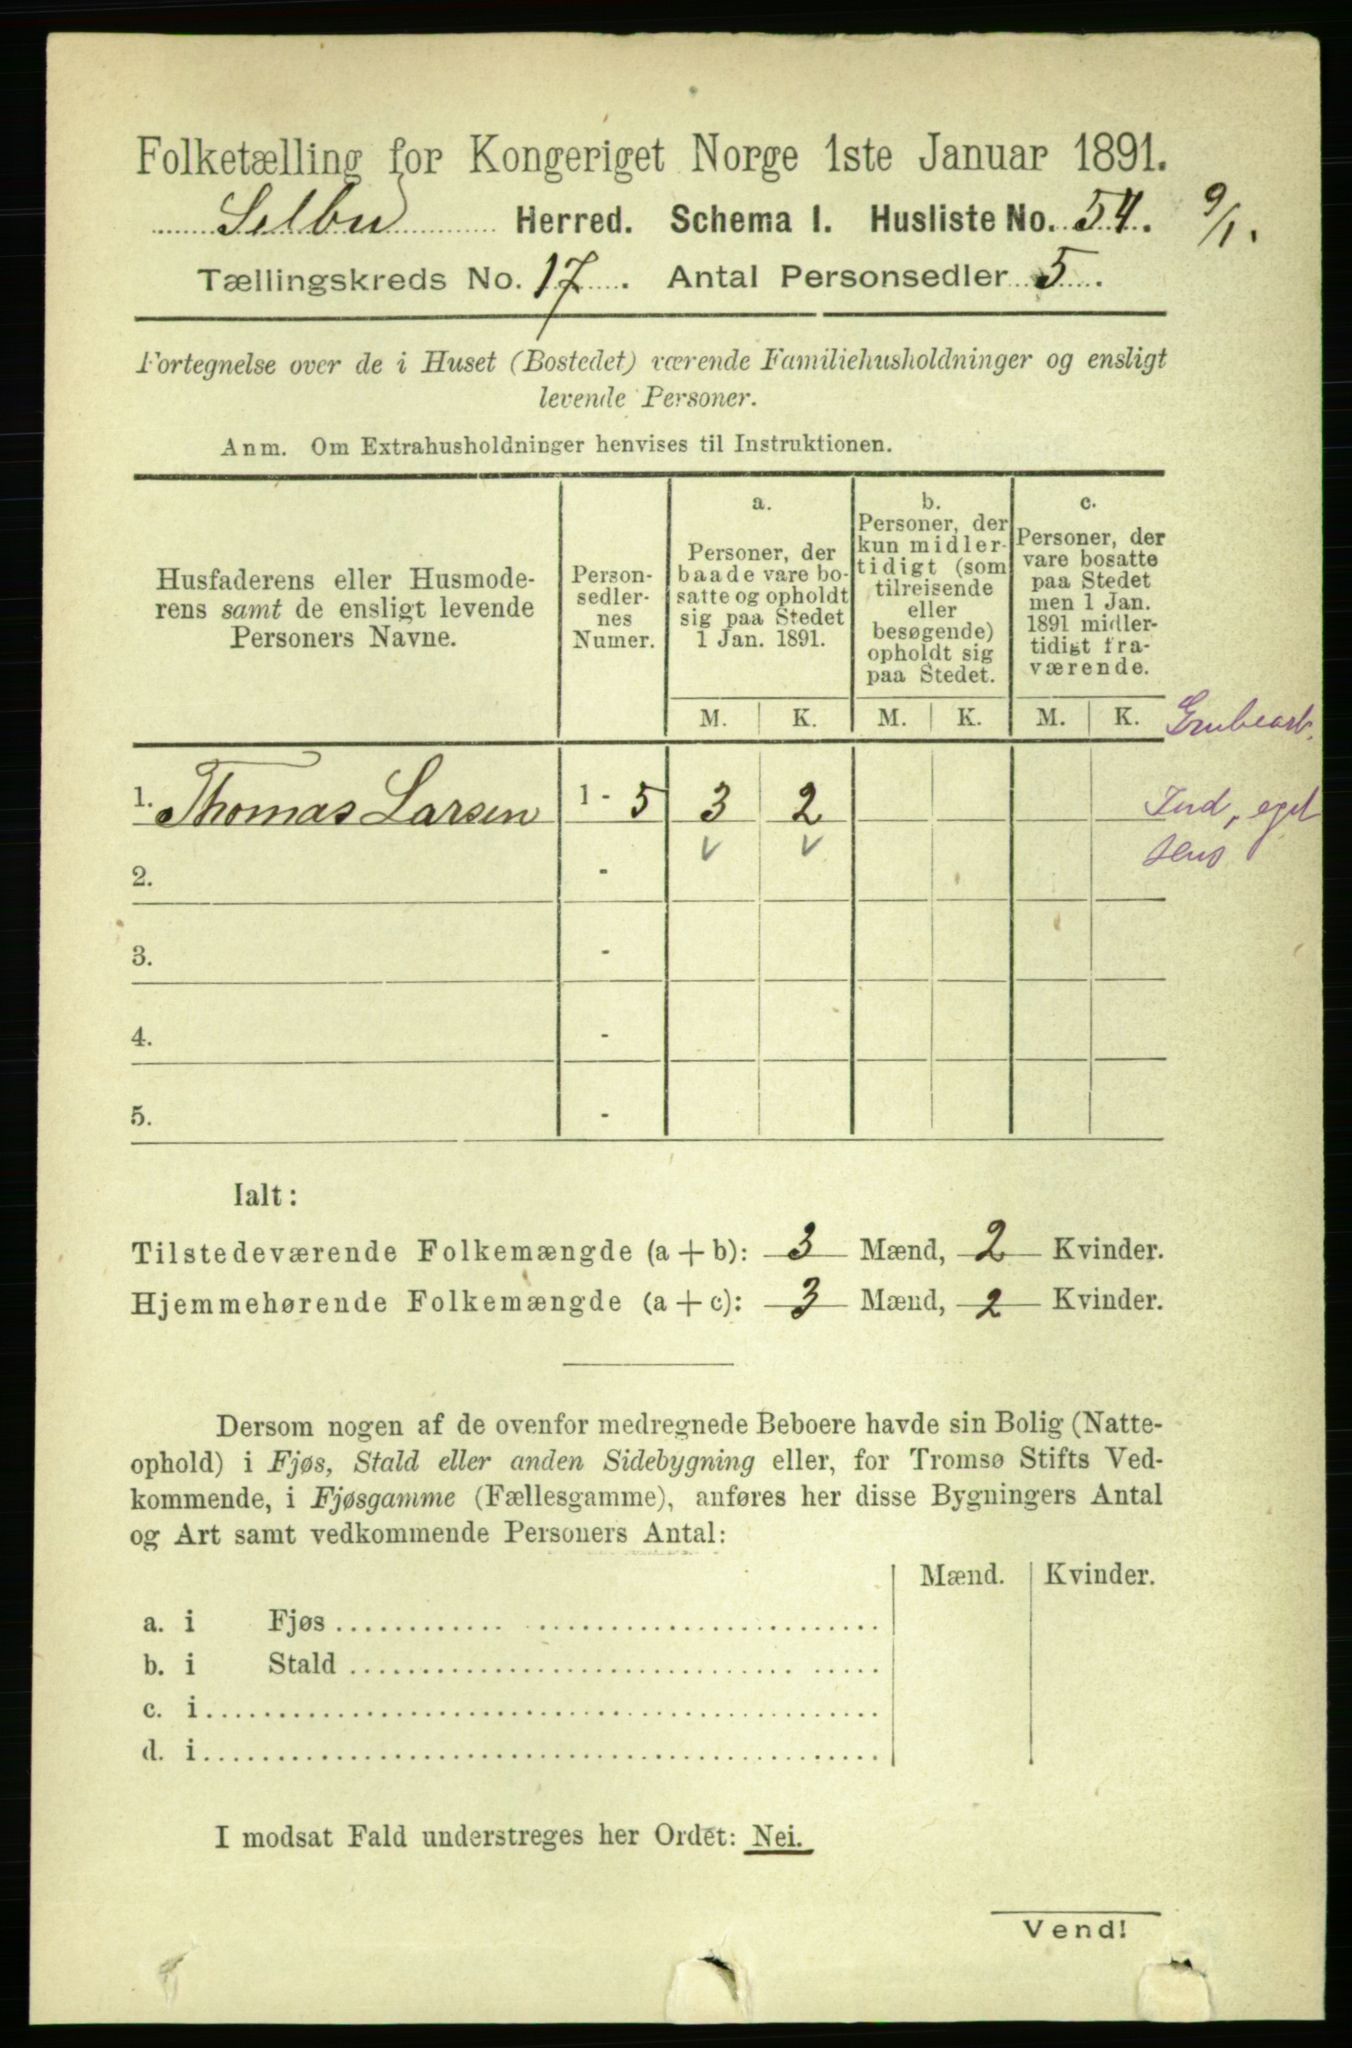 Folketælling for Kongeriget Norge 1ste Januar 1891.
Selbu Herred. Schema I. Husliste No. 54. 9/1.
Tællingskreds No. 17. Antal Personsedler 5.
Fortegnelse over de i Huset (Bostedet) værende Familiehusholdninger og ensligt
levende Personer.
Anm. Om Extrahusholdninger henvises til Instruktionen.
Husfaderens eller Husmode-
rens samt de ensligt levende
Personers Navne.
Person-
sedler-
nes
Numer.
a.
Personer, der
baade vare bo-
satte og opholdt
sig paa Stedet
1 Jan. 1891.
b.
Personer, der
kun midler-
tidigt (som
tilreisende
eller
besøgende)
opholdt sig
paa Stedet.
c.
Personer, der
vare bosatte
paa Stedet
men 1 Jan.
1891 midler-
tidigt fra-
værende.
M. K. M. K. M. K.
Grubearb.
1. Thomas Larsen 1 - 5 3 2
Ind, eget
2. -
3. -
4. -
5. -
Ialt:
Tilstedeværende Folkemængde (a + b): 3 Mænd, 2 Kvinder.
Hjemmehørende Folkemængde (a + c): 3 Mænd, 2 Kvinder.
Dersom nogen af de ovenfor medregnede Beboere havde sin Bolig (Natte-
ophold) i Fjøs, Stald eller anden Sidebygning eller, for Tromsø Stifts Ved-
kommende, i Fjøsgamme (Fællesgamme), anføres her disse Bygningers Antal
og Art samt vedkommende Personers Antal:
Mænd. Kvinder.
a. i Fjøs
b. i Stald
c. i
d. i
I modsat Fald understreges her Ordet: Nei.
Vend!